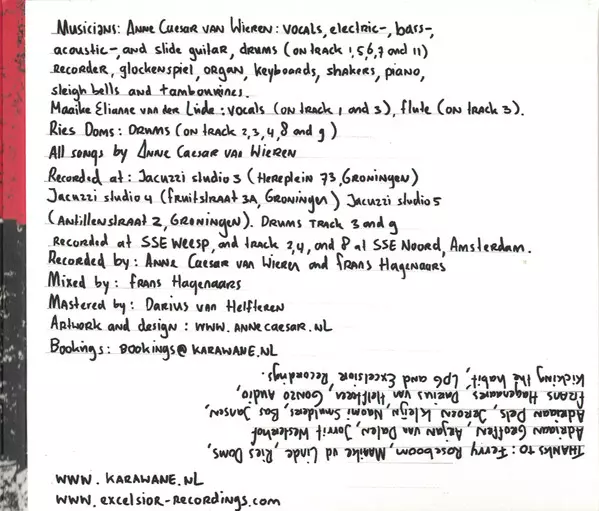 Musicians: Anne Caesar van Wieren: vocals, electric-, bass-,
acoustic-, and slide guitar, drums (on track 1,5,6,7 and 11)
recorder, glockenspiel, organ, keyboards, shakers, piano,
sleigh bells and tambourines.
Maaike Elianne van der Linde: vocals (on track 1 and 3), flute (on track 3).
Ries Doms: Drums (on track 2,3,4,8 and 9)
All songs by Anne Caesar van Wieren
Recorded at: Jacuzzi studio 3 (Hereplein 73, Groningen)
Jacuzzi studio 4 (fruitstraat 3A, Groningen) Jacuzzi studio 5
(Antillenstraat 2, Groningen). Drums track 3 and 9
recorded at SSE Weesp, and track 2,4, and 8 at SSE Noord, Amsterdam.
Recorded by: Anne Caesar van Wieren and Frans Hagenaars
Mixed by: Frans Hagenaars
Mastered by: Darius van Helfteren
Artwork and design: www.annecaesar.nl
Bookings: bookings@karawane.nl
Thanks to: Ferry Roseboom, Maaike vd Linde, Ries Doms,
Adriaan Groffen, Arjan van Dalen, Jorrit Westerhof
Adriaan Pels, Jeroen Kleijn, Naomi Smulders, Bas Jansen,
Frans Hagenaars, Darius van Helfteren, Gonzo Audio,
Kicking the habit, LPG and Excelsior Recordings.
www.karawane.nl
www.excelsior-recordings.com